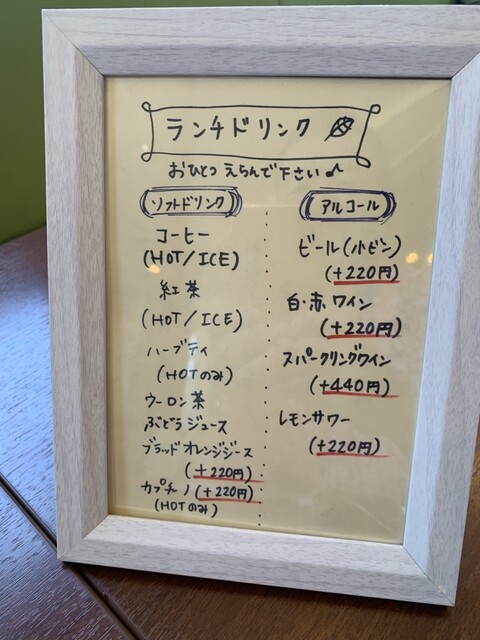 ランチドリンク
おひとつ えらんで下さい♪
ソフトドリンク
コーヒー
(HOT/ICE)
紅茶
(HOT/ICE)
ハーブティ
(HOTのみ)
ウーロン茶
ぶどうジュース
ブラッドオレンジジース
(+220円)
カプチーノ(+220円)
(HOTのみ)
アルコール
ビール(小ビン)
(+220円)
白・赤ワイン
(+220円)
スパークリングワイン
(+440円)
レモンサワー
(+220円)